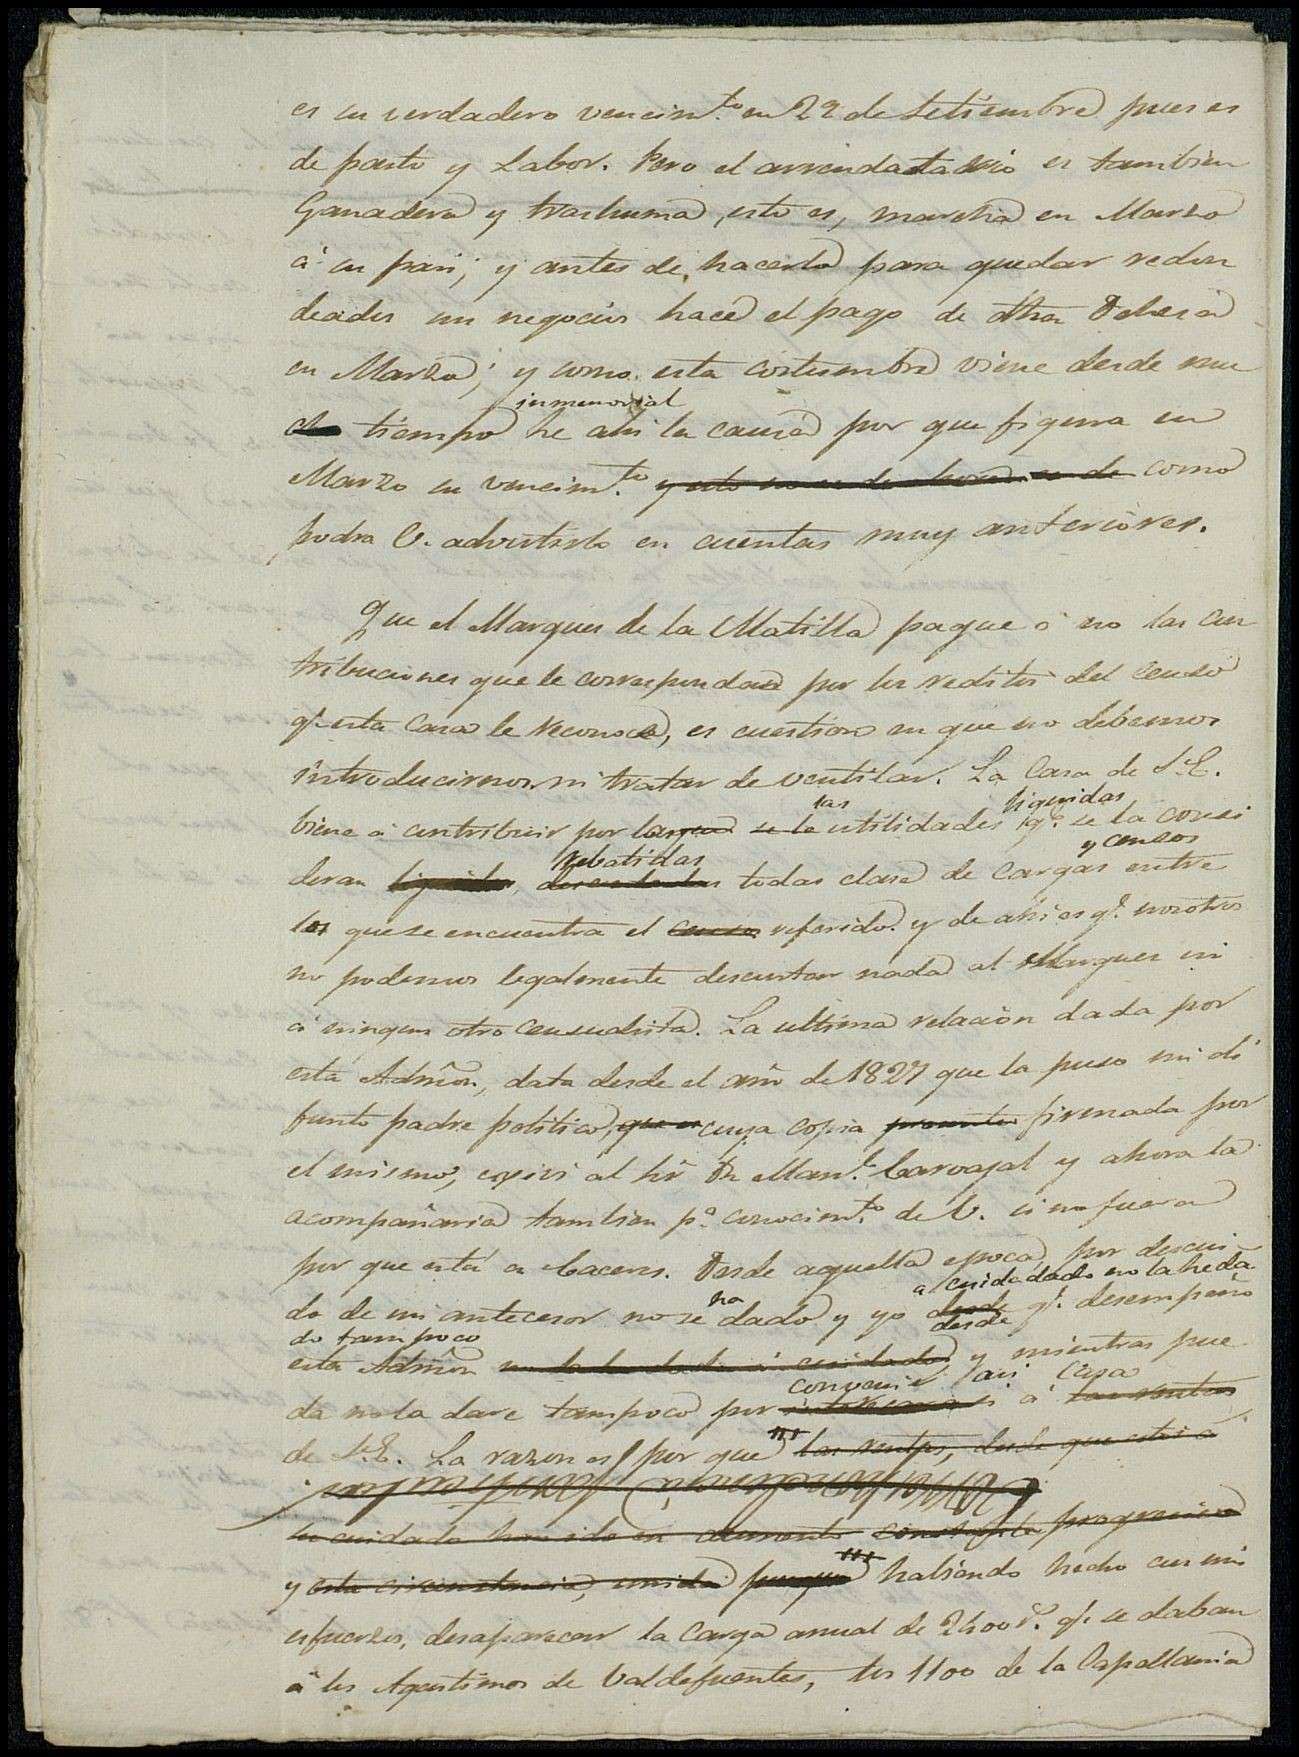 es su verdadero vencim.to en 29 de Setiembre pues es
de pasto y Labor. Pero el arrendatario es tambien
Ganadero y trashuma, esto es, marcha en Marzo
á su pais; y antes de hacerlo para quedar redon
deados sus negocios hace el pago de dha Dehesa
en Marzo; y como esta costumbre viene desde
inmemorial
tiempo he ahi la causa por que figura en
Marzo su vencim.to y esto no es de ahora como
podra V. advertirlo en cuentas muy anteriores.
Que el Marques de la Matilla pague ó no las con
tribuciones que le correspondan por los reditos del censo
q.e esta Casa le reconoce, es cuestion en que no debemos
introducirnos ni tratar de ventilar. La Casa de S.E.
las liquidas
biene á contribuir por se le utilidades q.e se la consi
rebatidas y censos
deran liquidas, descontadas todas clase de Cargas entre
los que se encuentra el censo referido y de ahi es q.e nosotros
no podemos legalmente descontar nada al Marques ni
á ningun otro Censualista. La ultima relacion dada por
esta Admon, data desde el año de 1827 que la puso mi di
funto padre politico, que es cuya copia firmada por
el mismo, exivi al Sr Dn Man.l Carvajal y ahora la
acompañaria tambien p.a conocim.to de V. si no fuera
por que está en Caceres. Desde aquella epoca por descui
ha a cuidadado no la he da
do de mi antecesor no se dado y yo desde q.e desempeño
desde
do tampoco
esta Admon no la he dado á cuidado y mientras pue
convenir asi Casa
da no la dare tampoco por á las rentas
de S.E. La razon es por que las rentas, desde que estan á
mi cuidado han ido en aumento constante progresivo
y esta circunstancia, unida porque habiendo hecho con mis
esfuerzos, desaparecer la Carga anual de 2400 r.s q.e se daban
á los Agustinos de Valdefuentes, los 1100 de la Capellania